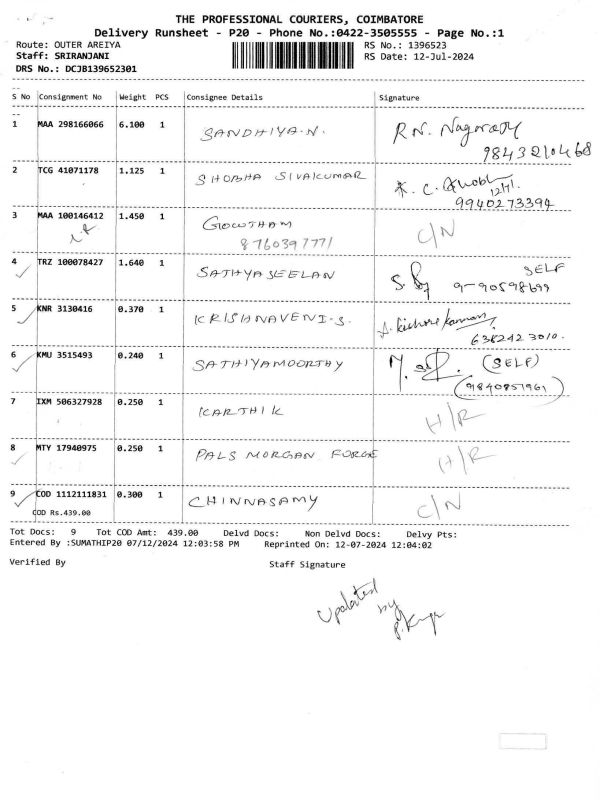 THE PROFESSIONAL COURIERS, COIMBATORE
Delivery Runsheet - P20 - Phone No.:0422-3505555 - Page No.:1
Route: OUTER AREIYA RS No.: 1396523
Staff: SRIRANJANI RS Date: 12-Jul-2024
DRS No.: DCJB139652301
S No Consignment No Weight PCS Consignee Details Signature
1 MAA 298166066 6.100 1 SANDHIYA-N. R.N.
9843210468
2 TCG 41071178 1.125 1 SHOBHA SIVAKUMAR K. C.
12/7/.
9940273394
3 MAA 100146412 1.450 1 GOWTHAM C/N
8760397771
4 TRZ 100078427 1.640 1 SATHYASEELAN SELF
5 KNR 3130416 0.370 1 KRISHNAVENI-S.
638242 3010.
6 KMU 3515493 0.240 1 SATHIYAMOORTHY (SELF)
(9840857961)
7 IXM 506327928 0.250 1 KARTHIK H/R
8 MTY 17940975 0.250 1 PALS MORGAN FORGE H/R
9 COD 1112111831 0.300 1 CHINNASAMY C/N
COD Rs.439.00
Tot Docs: 9 Tot COD Amt: 439.00 Delvd Docs: Non Delvd Docs: Delvy Pts:
Entered By :SUMATHIP20 07/12/2024 12:03:58 PM Reprinted On: 12-07-2024 12:04:02
Verified By Staff Signature
Updated
by